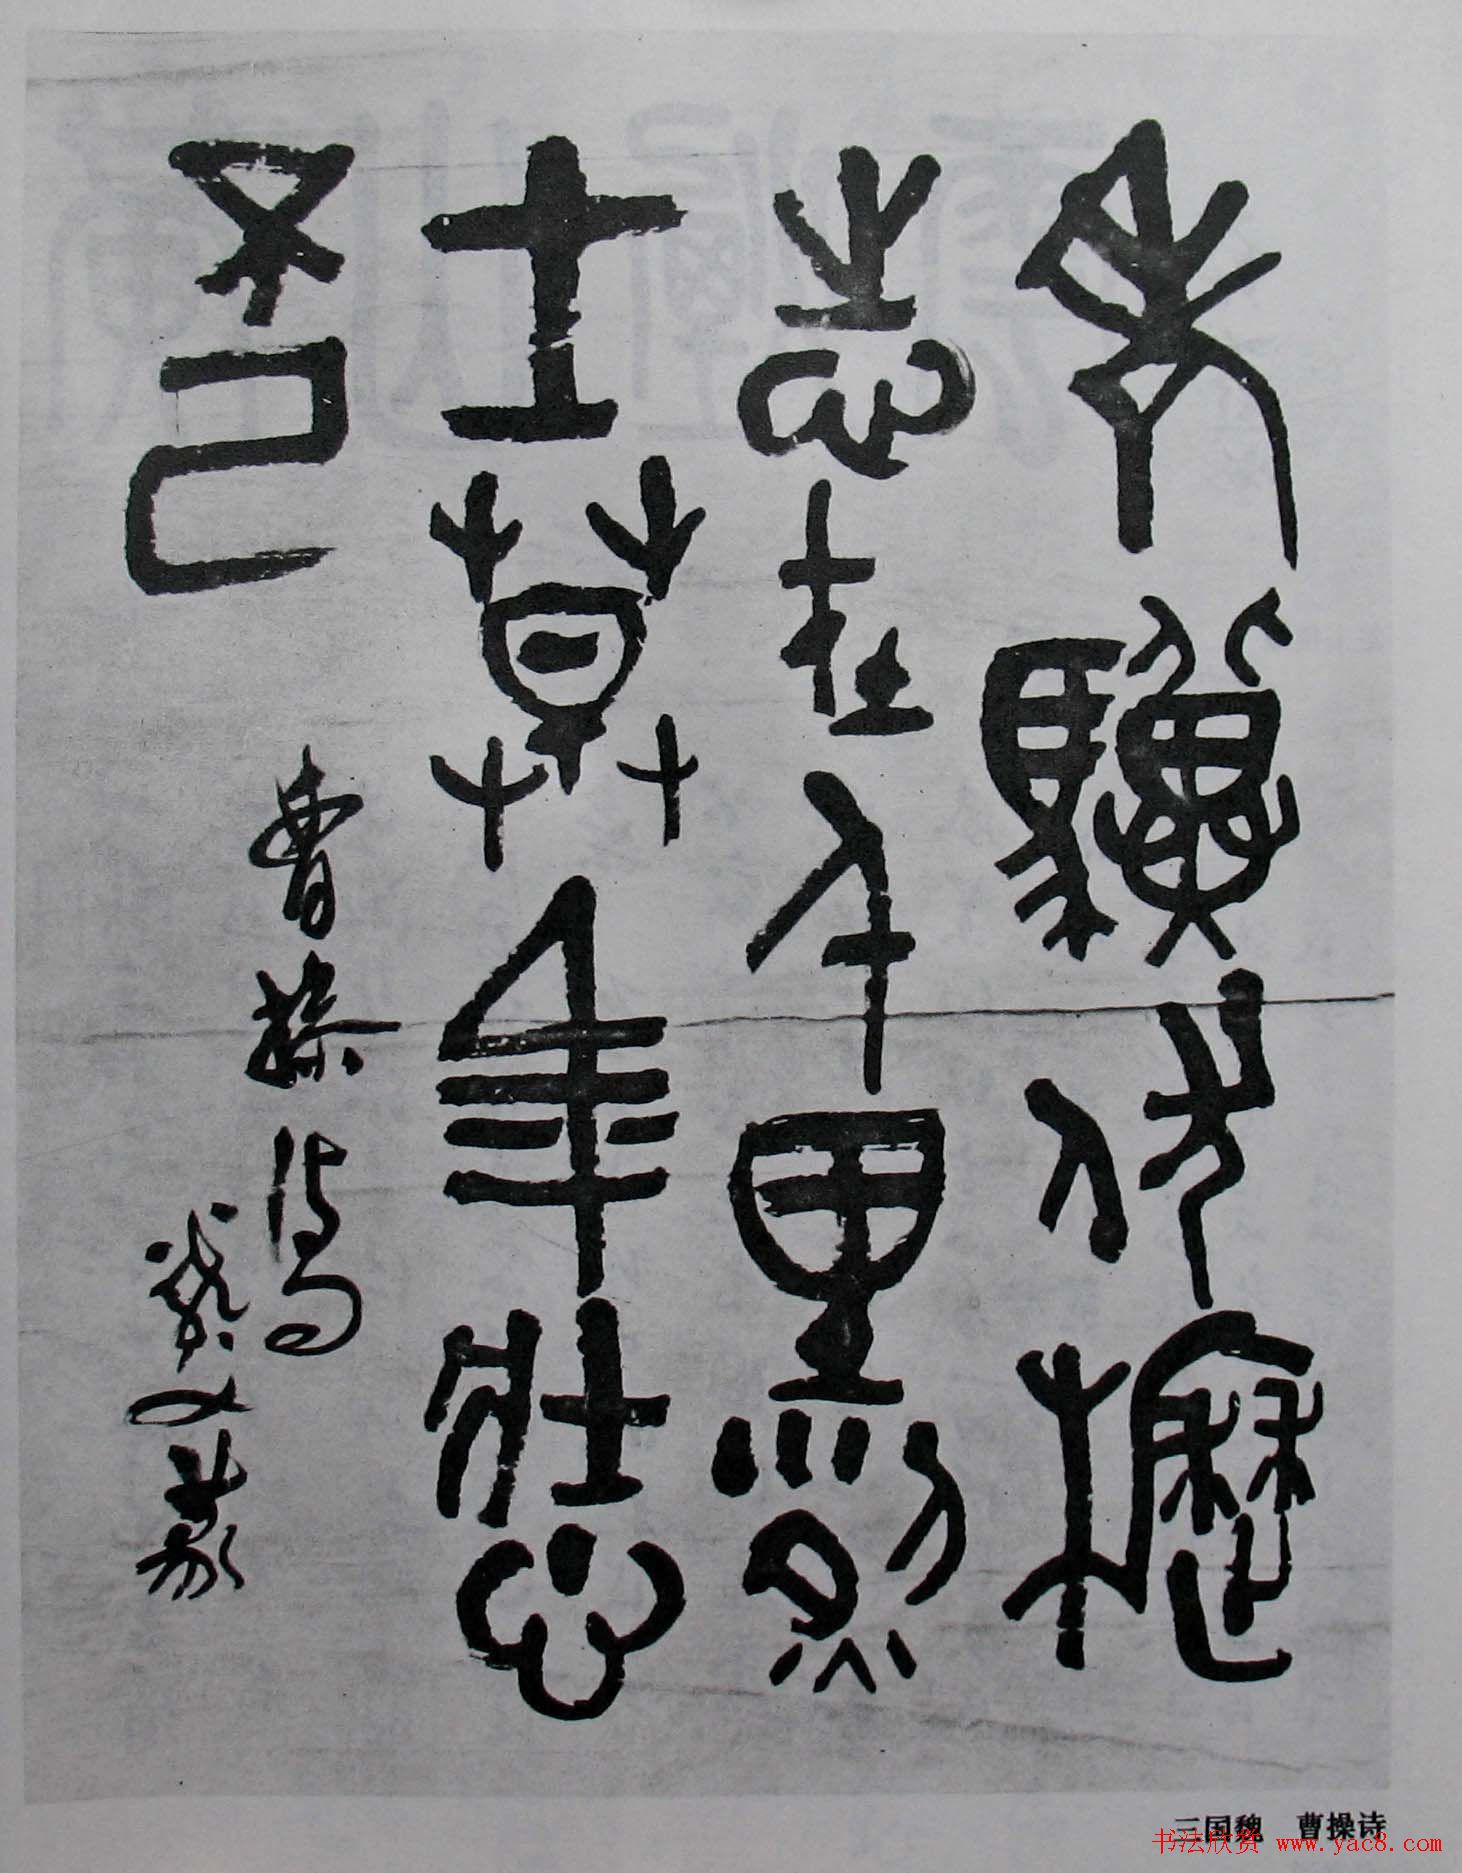 老驥伏櫪
志在千里烈
士暮年壯心
不已
曹操詩
篆
三国魏 曹操诗
书法欣赏 www.yac8.com